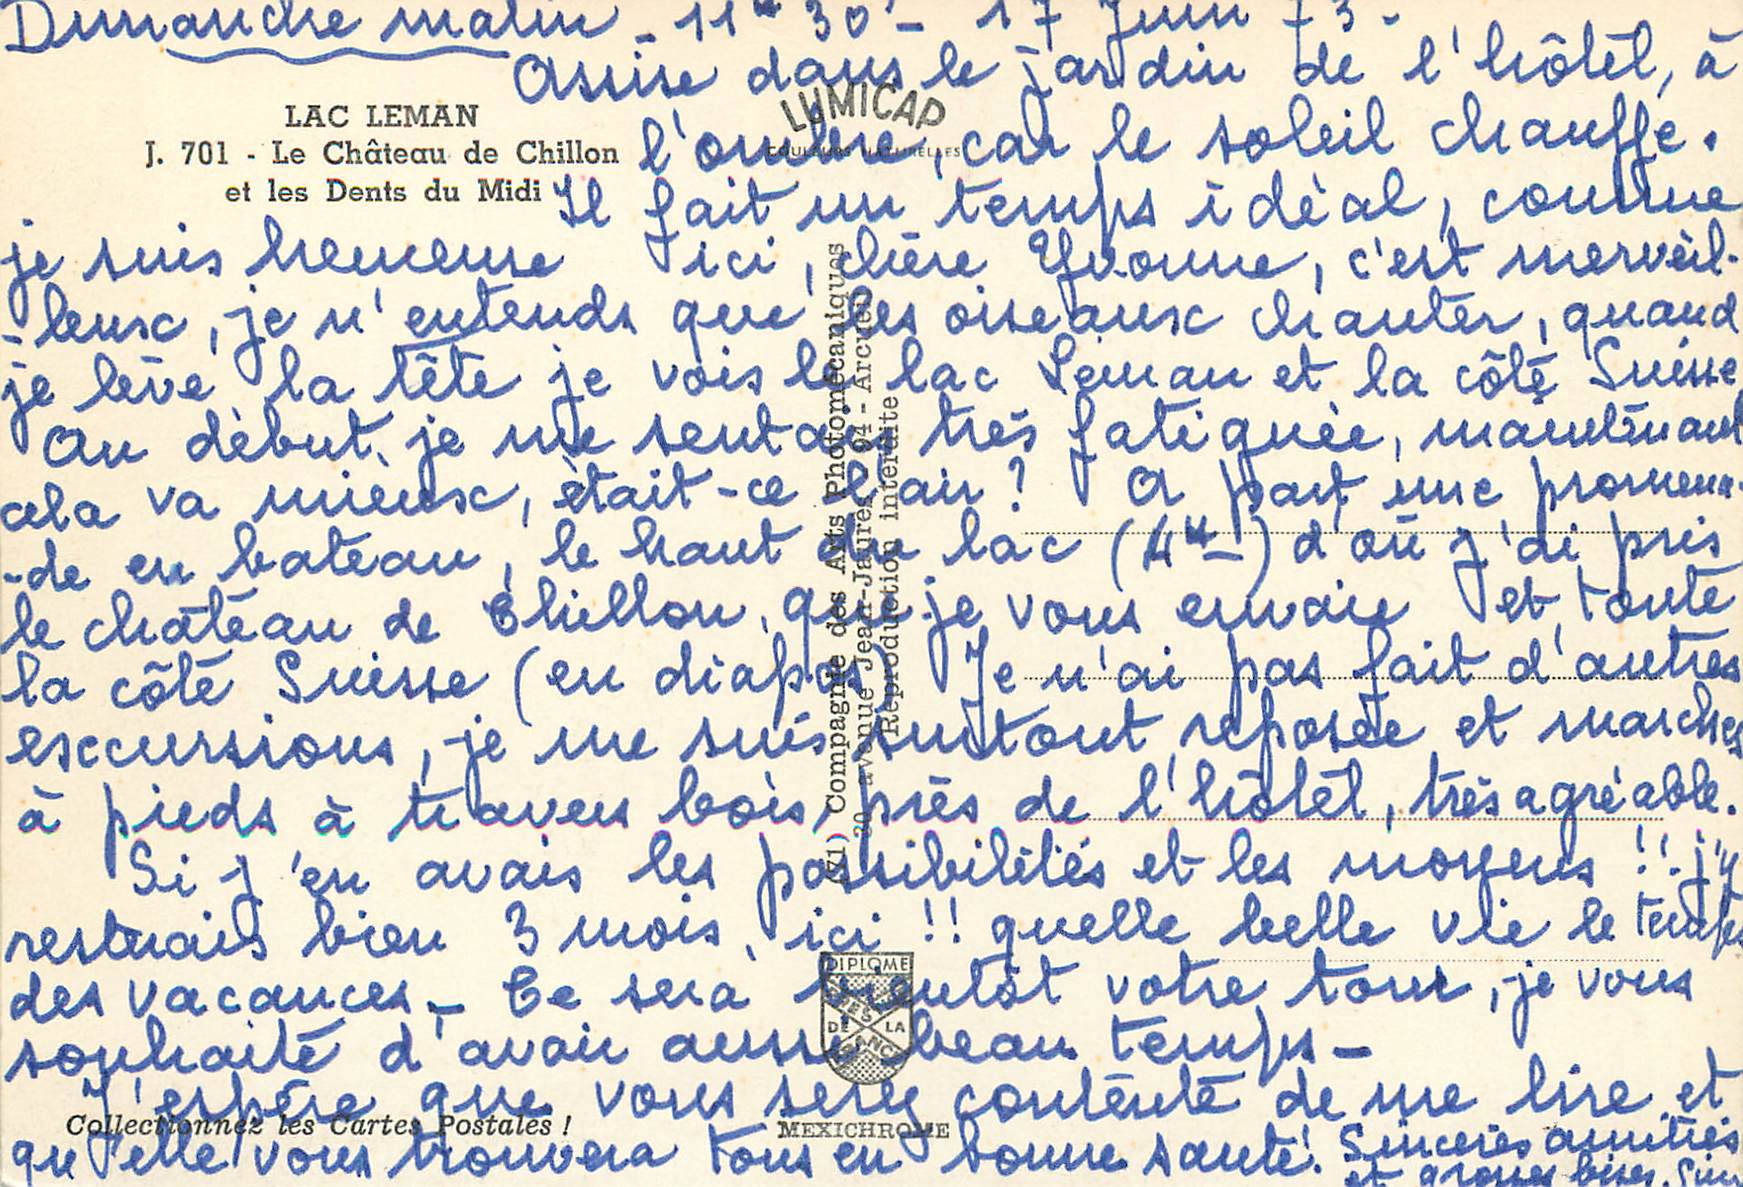 Dimanche matin - 11H 30 - 17 Juin 73 -
Assise dans le jardin de l'hôtel, à
LUMICAP
COULEURS NATURELLES
LAC LEMAN
J. 701 - Le Château de Chillon
et les Dents du Midi
l'ombre, car le soleil chauffe.
Il fait un temps idéal, comme
je suis heureuse ici, chère Yvonne, c'est merveil-
-leux, je n'entends que les oiseaux chanter, quand
je lève la tête je vois le lac Léman et la côte Suisse
Au début, je me sentais très fatiguée, maintenant
cela va mieux, était-ce l'air ? A part une promena-
-de en bateau, le haut du lac (4H) d'où j'ai pris
le château de Chillon, que je vous envoie et toute
la côte Suisse (en diapos) Je n'ai pas fait d'autres
excursions, je me suis surtout reposée et marches
à pieds à travers bois, près de l'hôtel, très agréable.
Si j'en avais les possibilités et les moyens !! j'y
resterais bien 3 mois, ici !! quelle belle vie le temps
des vacances - Ce sera bientôt votre tour, je vous
souhaite d'avoir aussi beau temps -
J'espère que vous serez contente de me lire et
qu'elle vous trouvera tous en bonne santé. Sincères amitiés
et grosses bises.
(71) Compagnie des Arts Photomécaniques
30, avenue Jean-Jaurès, 94 - Arcueil
Reproduction interdite
DIPLOME
DE LA
FRANCE
Collectionnez les Cartes Postales !
MEXICHROME